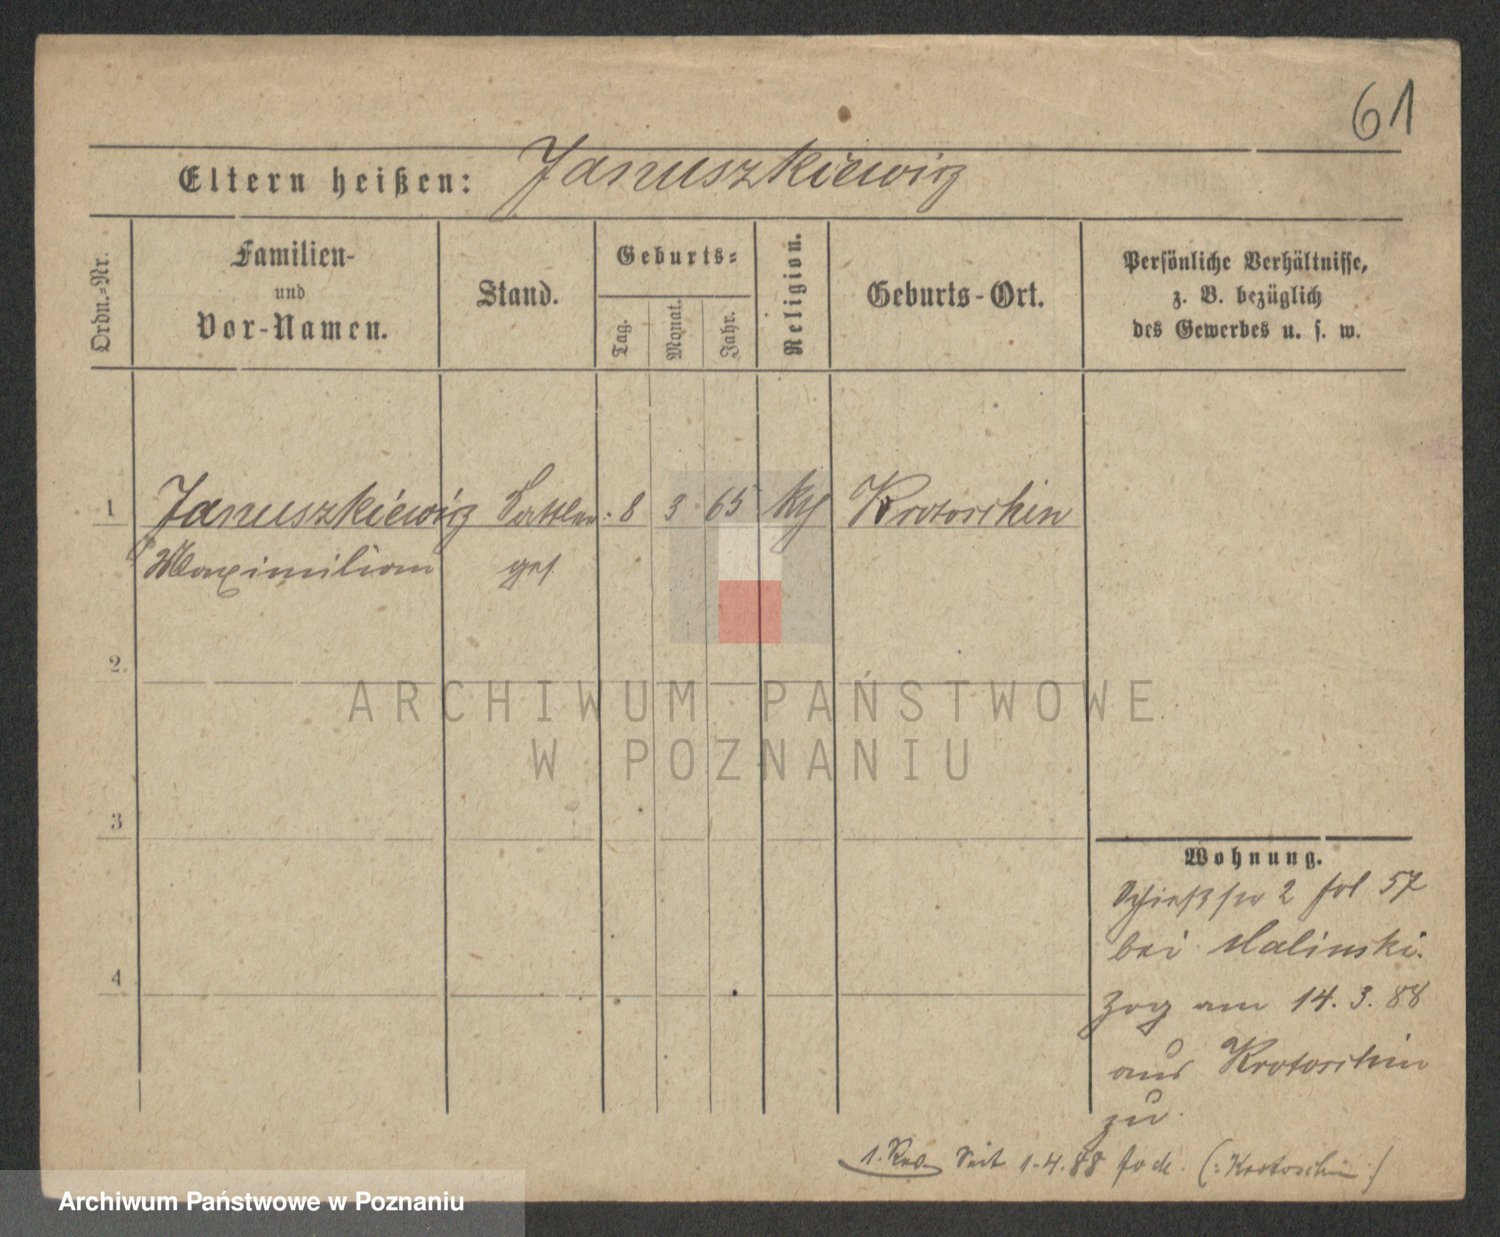 61
Eltern heißen: Januszkiewicz
Ordn.-Nr.
Familien-
und
Vor-Namen.
Stand.
Geburts-
Tag. Monat. Jahr.
Religion.
Geburts-Ort.
Persönliche Verhältnisse,
z. B. bezüglich
des Gewerbes u. s. w.
1 Januszkiewicz Sattler- 8 3 65 Krotoschin
Maximilian ges
2.
3
4
ARCHIWUM PAŃSTWOWE
W POZNANIU
Wohnung.
Schießstr 2 fol 57
bei Malinski.
Zog am 14. 3. 88
aus Krotoschin
zu.
Seit 1.4.88 (: Krotoschin :)
Archiwum Państwowe w Poznaniu